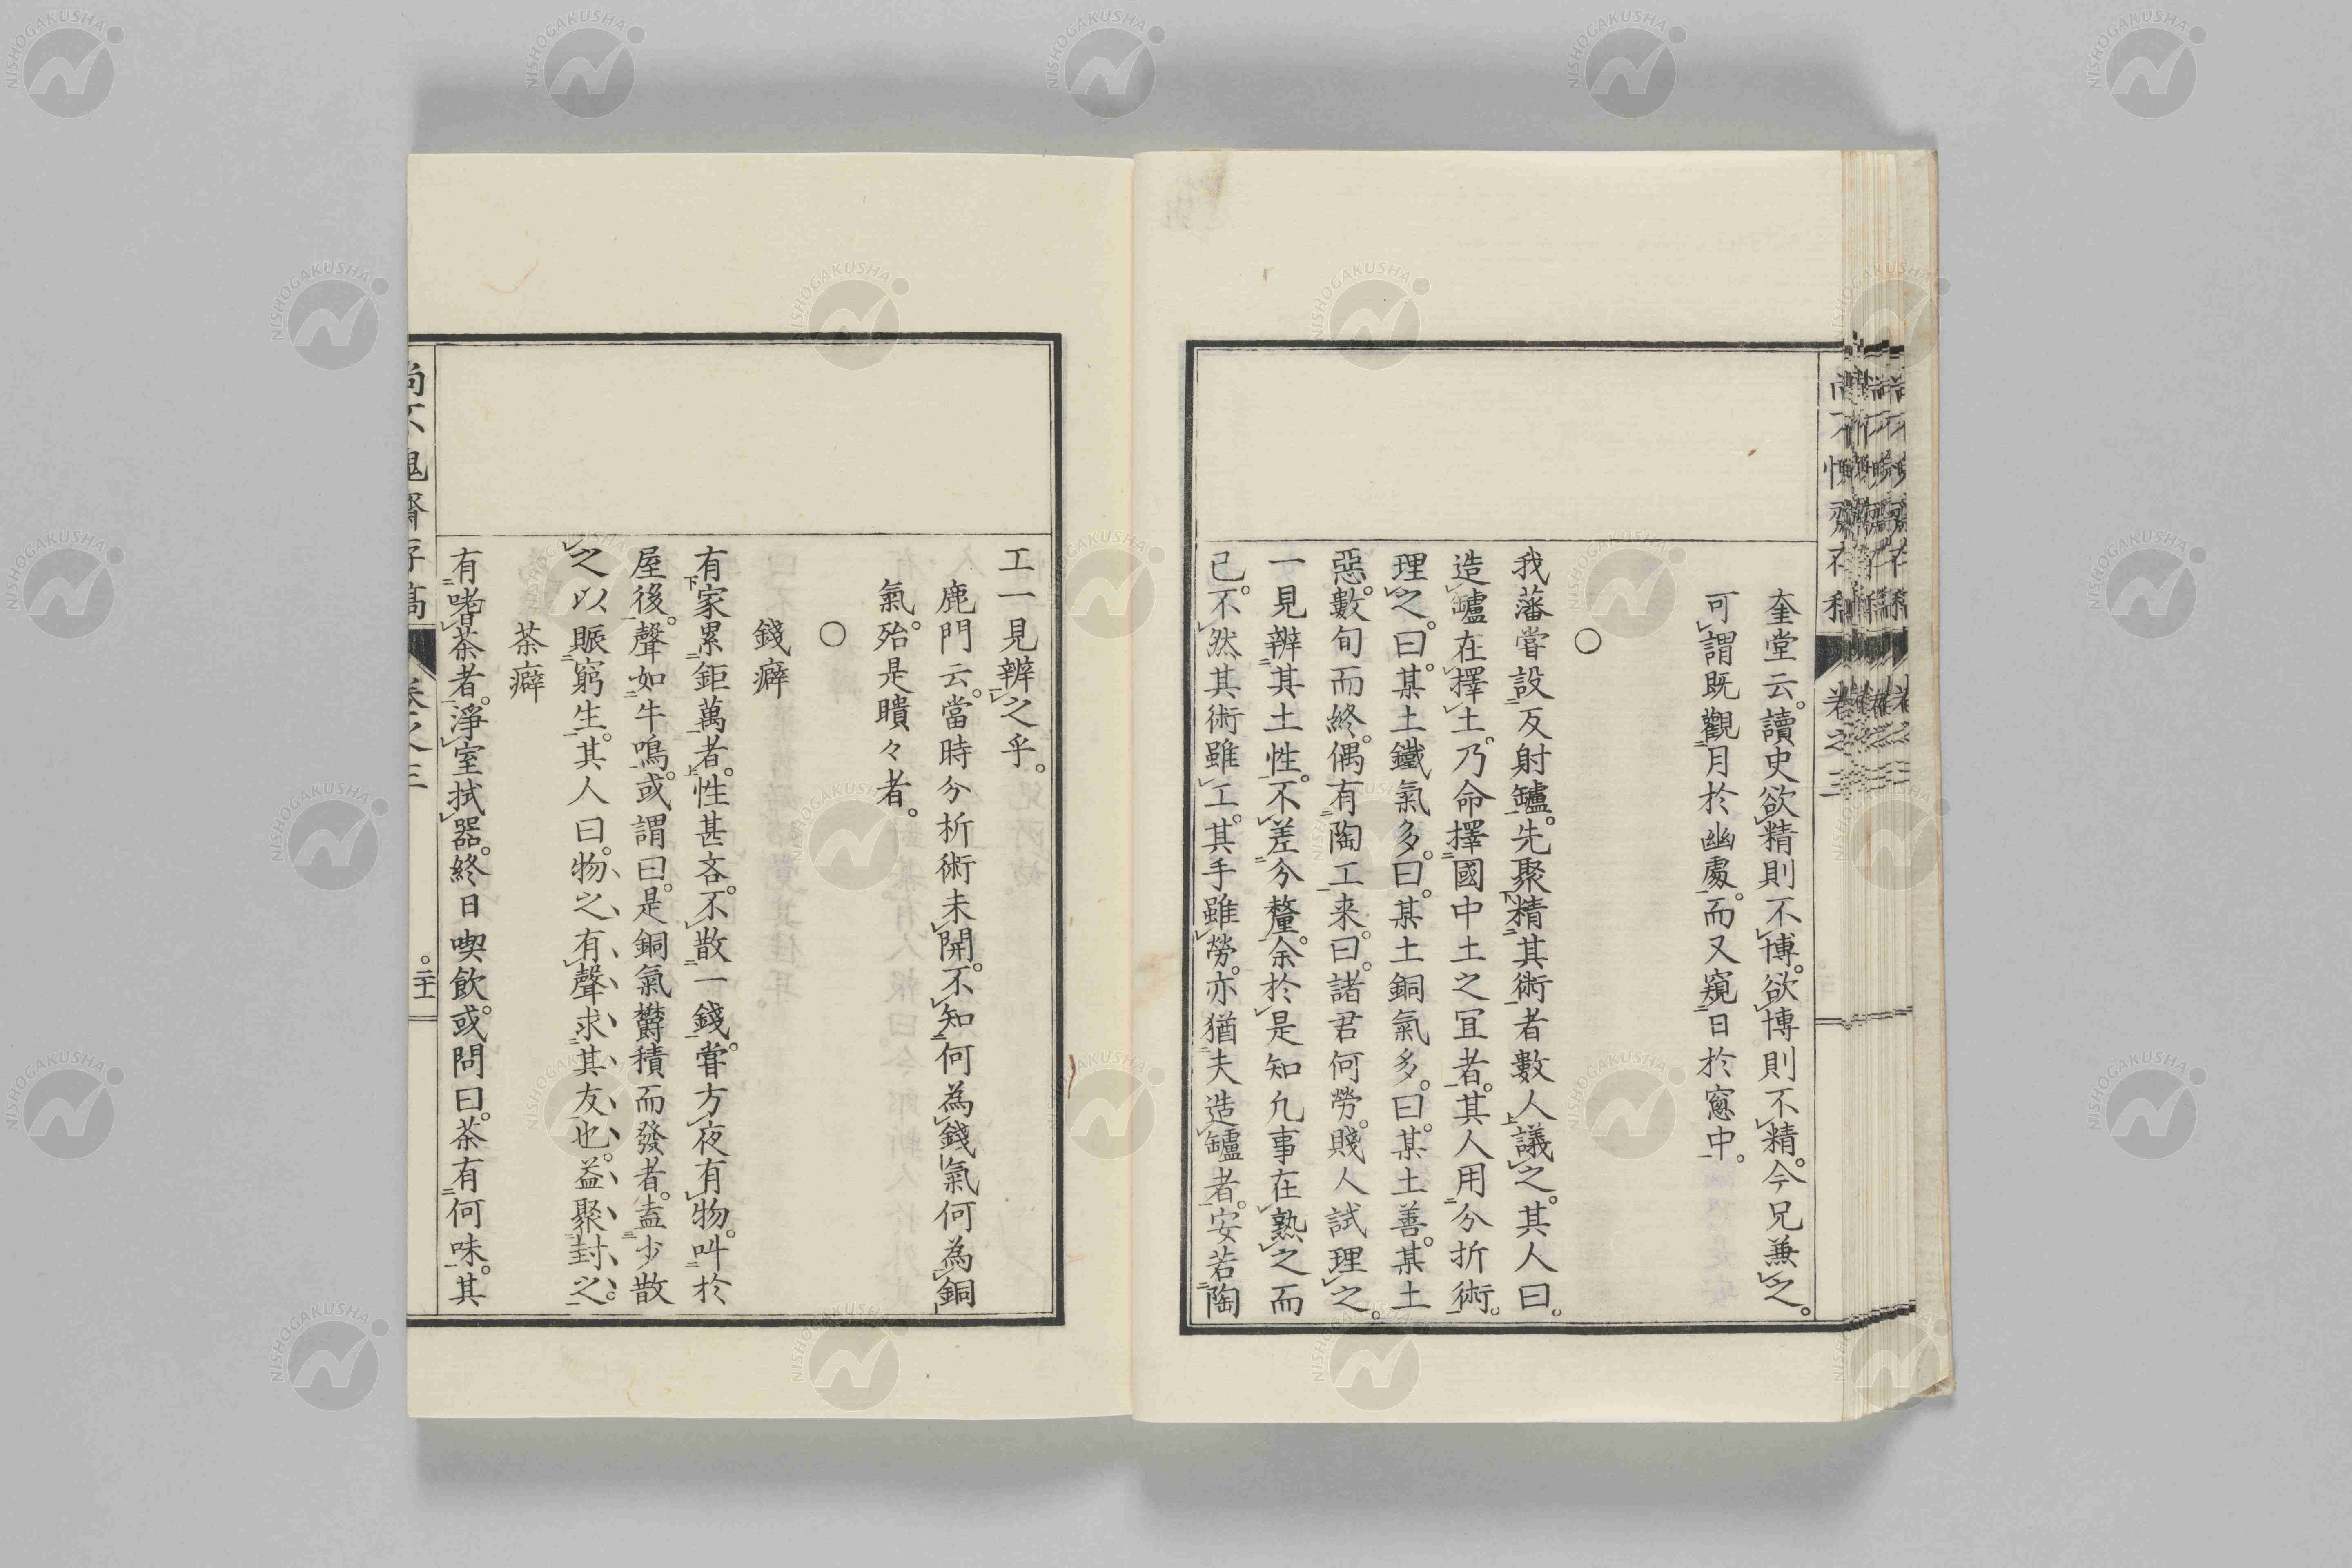 奎堂云。讀史欲精則不博。欲博則不精。今兄兼之。
可謂既觀月於幽處。而又窺日於窓中。
○
我藩嘗設反射鑪。先聚精其術者數人議之。其人曰。
造鑪在擇土。乃命擇國中土之宜者。其人用分折術。
理之。曰。某土鐵氣多。曰。某土銅氣多。曰。某土善。某土
惡。數旬而終。偶有陶工来。曰。諸君何勞。賤人試理之。
一見辨其土性。不差分釐。余於是知凢事在熟之而
已。不然其術雖工。其手雖勞。亦猶夫造鑪者。安若陶
工一見辨之乎。
鹿門云。當時分析術未開。不知何為錢氣何為銅
氣。殆是瞶々者。
○
錢癖
有家累鉅萬者。性甚吝。不散一錢。甞方夜有物。叫於
屋後。聲如牛鳴。或謂曰。是銅氣欝積而發者。盍少散
之以賑窮生。其人曰。物之有聲求其友也。益聚封之。
茶癖
有嗜茶者。淨室拭器。終日喫飲。或問曰。茶有何味。其
卷之三
二十一
NISHOGAKUSHA